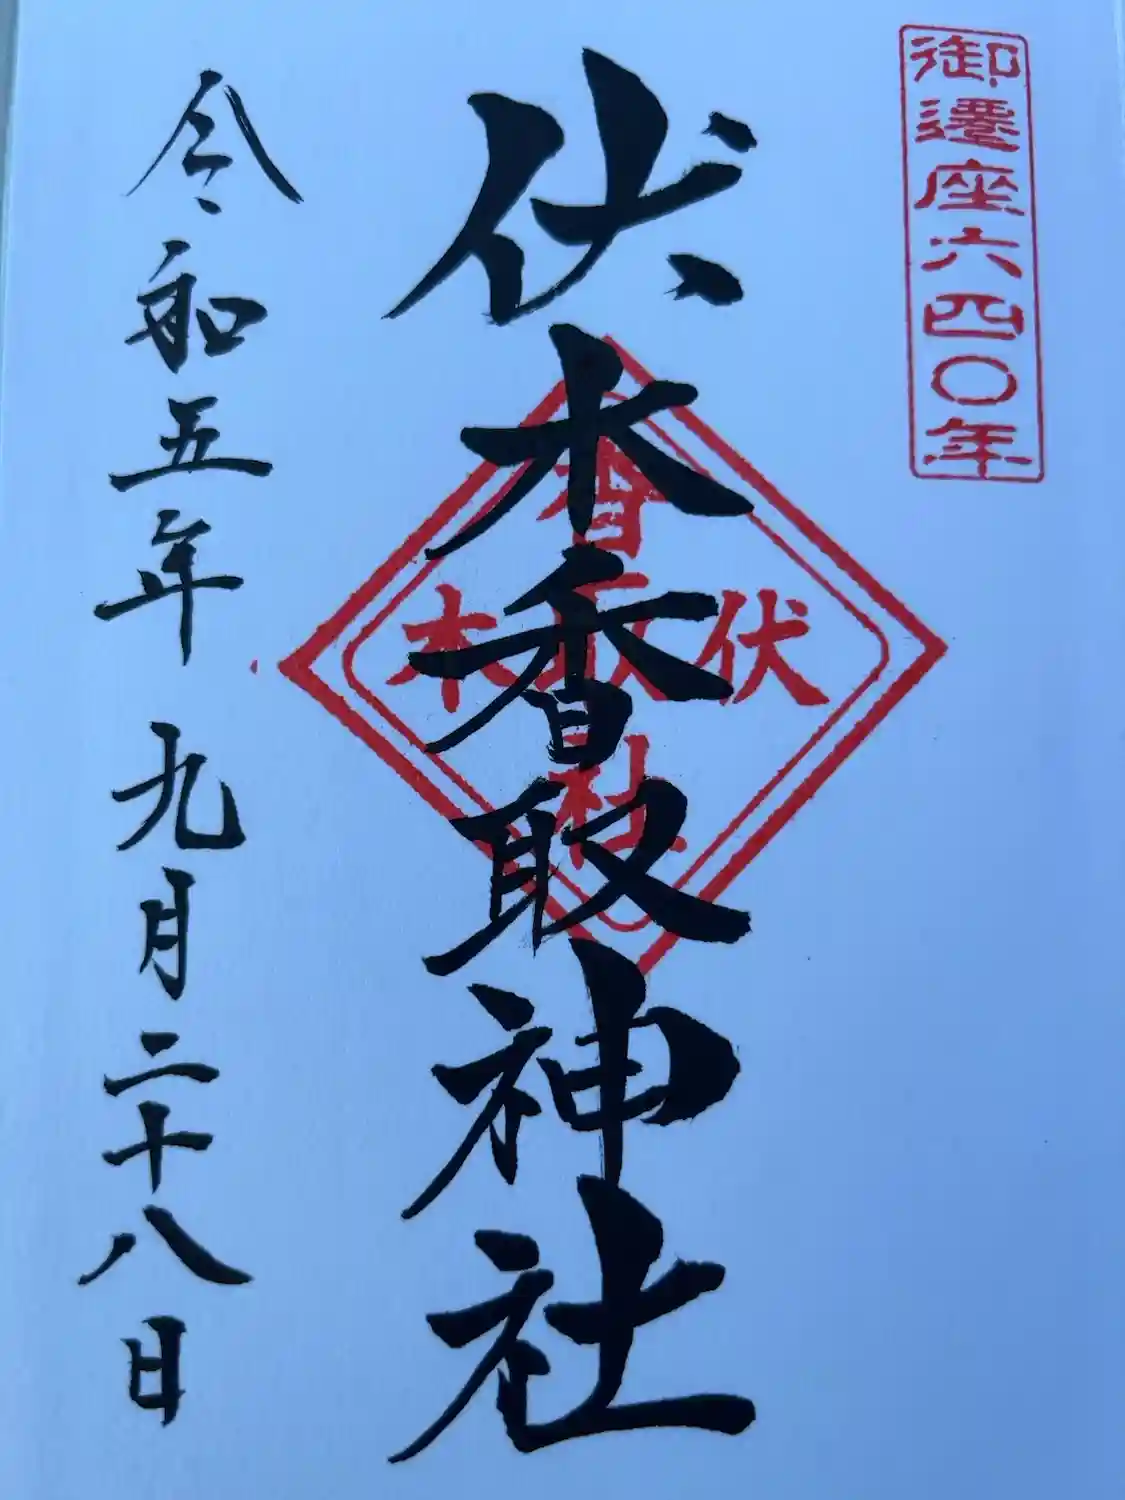 御遷座六四〇年
伏木香取神社
香取
伏木
社
令和五年 九月二十八日